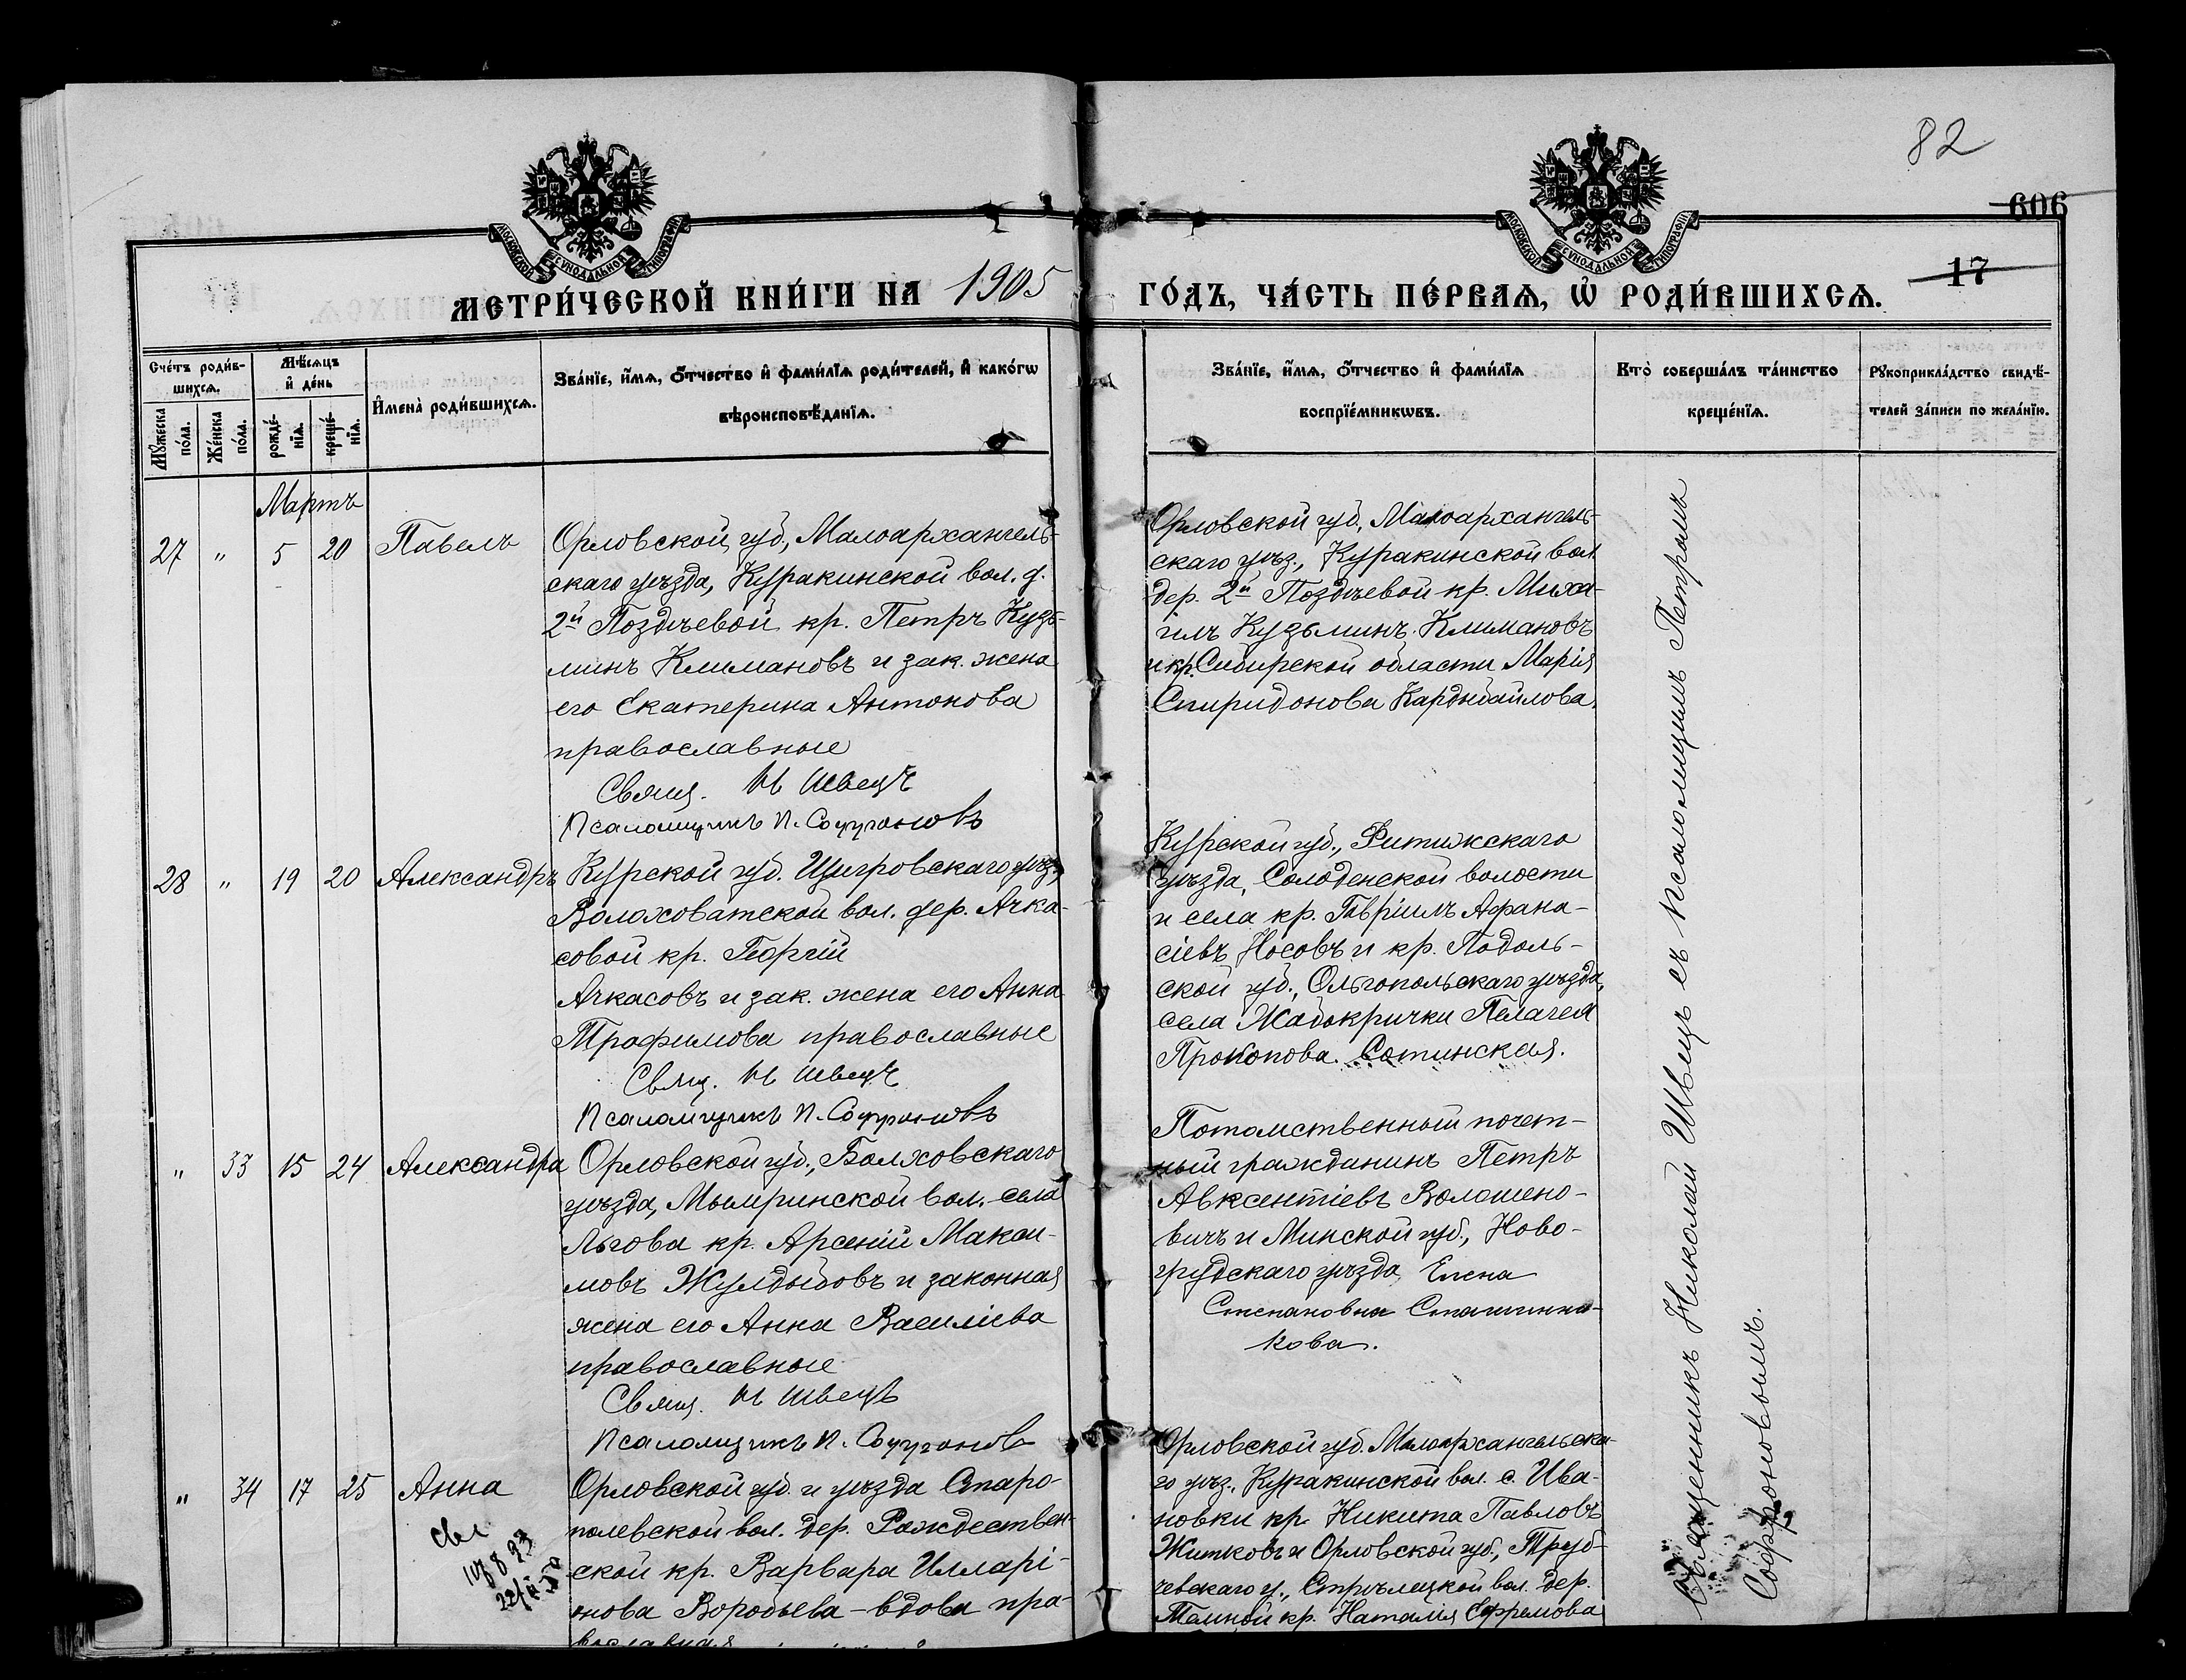 82
606
МОСКОВСКОЙ СѴНОДАЛЬНОЙ ТИПОГРАФІИ
МОСКОВСКОЙ СѴНОДАЛЬНОЙ ТИПОГРАФІИ
МЕТРИ́ЧЕСКОЙ КНИ́ГИ НА 1905 ГО́ДЪ, ЧА́СТЬ ПЕ́РВАѦ, Ѽ РОДИ́ВШИХСѦ.
17
Сче́тъ роди́в-
шихсѧ.
Мꙋ́жеска
по́ла.
Же́нска
по́ла.
Мѣ́сѧцъ
и҆ де́нь
рожде́-
нїѧ.
креще́-
нїѧ.
И҆мена̀ роди́вшихсѧ.
Зва́нїе, и҆́мѧ, ѻ҆́тчество и҆ фами́лїѧ роди́телей, и҆ како́гѡ
вѣроисповѣ́данїѧ.
Зва́нїе, и҆́мѧ, ѻ҆́тчество и҆ фами́лїѧ
воспрїе́мникѡвъ.
Кто̀ соверша́лъ та́инство
креще́нїѧ.
Рꙋкоприкла́дство свидѣ́-
телей за́писи по жела́нїю.
Мартъ
27 " 5 20 Павелъ
Орловской губ., Малоархангель-
скаго уѣзда, Куракинской вол. д.
2й Поздѣевой кр. Петръ Кузь-
минъ Климановъ и зак. жена
его Екатерина Антонова
православные
Свящ. Н Швецъ
Псаломщикъ П. Софроновъ
Орловской губ., Малоархангель-
скаго уѣз., Куракинской вол.
дер. 2й Поздѣевой кр. Миха-
илъ Кузьминъ Климановъ
и кр. Сибирской области Марія
Спиридонова Кардычаилова
28 " 19 20 Александръ
Курской губ. Щигровскаго уѣз.,
Волоховатской вол. дер. Ачка-
совой кр. Георгій
Ачкасовъ и зак. жена его Анна
Трофимова православные
Свящ. Н Швецъ
Псаломщикъ П. Софроновъ
Курской губ., Фитижскаго
уѣзда, Солоденской волости
и села кр. Гавріилъ Афана-
сіевъ Носовъ и кр. Подоль-
ской губ., Ольгопольскаго уѣзда,
села Жабокрички Пелагея
Прокопова Сотинская.
" 33 15 24 Александра
Орловской губ., Болховскаго
уѣзда, Мымринской вол. села
Льгова кр. Арсеній Макси-
мовъ Жулдыбовъ и законная
жена его Анна Василіева
православные
Свящ. Н Швецъ
Псаломщикъ П. Софроновъ
Потомственный почет-
ный гражданинъ Петръ
Авксентіевъ Волошено-
вичъ и Минской губ., Ново-
грудскаго уѣзда Елена
Степановна
кова.
" 34 17 25 Анна
Орловской губ. и уѣзда Старо-
полевской вол. дер. Рождествен-
ской кр. Варвара Илларі-
онова Воробьева – вдова пра-
вославная
Орловской губ. Малоархангельска-
го уѣз., Куракинской вол. с. Ива-
новки кр. Никита Павловъ
Житковъ и Орловской губ., Труб-
чевскаго у., Стрѣлецкой вол. дер.
кр. Наталія Ефремова
Священникъ Николай Швецъ съ псаломщикомъ Петромъ
Софроновымъ.